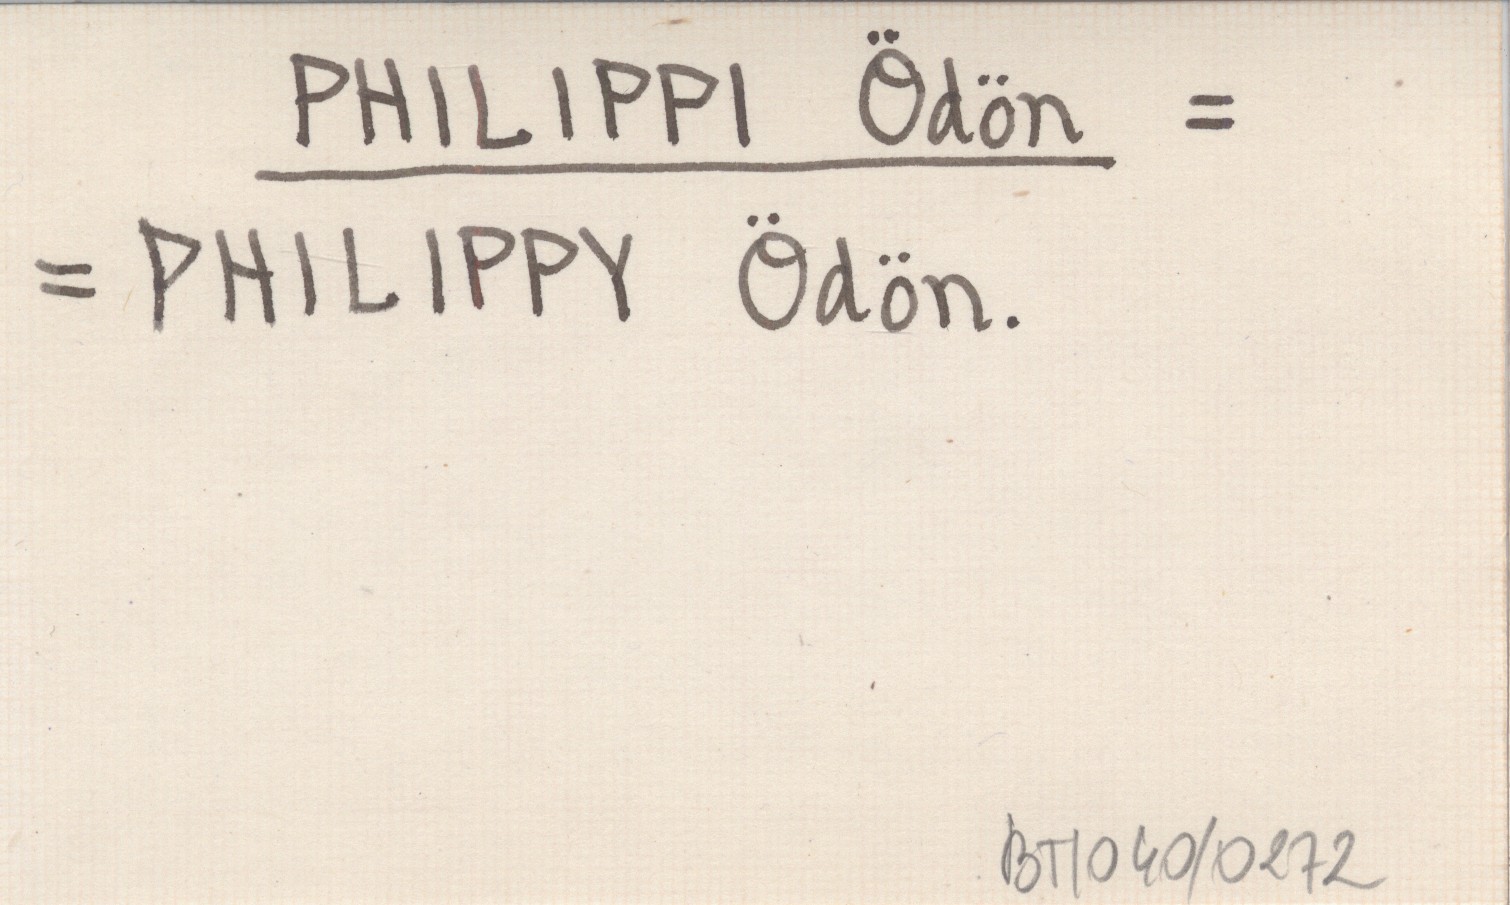 PHILIPPI Ödön =
= PHILIPPY Ödön.
BT/040/0272